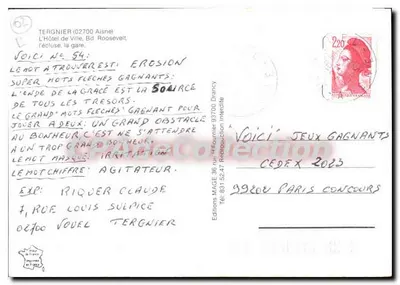 TERGNIER (02700 Aisne)
L'Hôtel de Ville, Bd. Roosevelt,
l'écluse, la gare.
VOICI No 54:
LE MOT A TROUVER EST: EROSION
SUPER MOTS FLECHES GAGNANTS:
L'ONDE DE LA GRACE EST LA SOURCE
DE TOUS LES TRESORS.
LE GRAND MOTS FLECHES GAGNANT POUR
JOUER A DEUX: UN GRAND OBSTACLE
AU BONHEUR, C'EST NE S'ATTENDRE
A UN TROP GRAND BONHEUR.
LE MOT MASQUE: IRRITATION
LE MOT CHIFFRE: AGITATEUR.
EXP: RIQUER CLAUDE
7, RUE LOUIS SULPICE
02700 VOUEL TERGNIER
Editions MAGE 36 rue 93700 Drancy
Tél. 831.52.47 Reproduction Interdite
2,20
VOICI JEUX GAGNANTS
CEDEX 2025
99200 PARIS CONCOURS
Collection